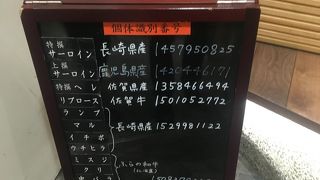 個体識別番号
特撰サーロイン 長崎県産 1457950825
上撰サーロイン 鹿児島県産 1420446171
特撰ヘレ 佐賀県産 1358466494
リブロース 佐賀牛 1501052772
ランプ
マル
イチボ 長崎県産 1529981122
ウチヒラ
ミスジ ふらの和牛
クリ (北海道)